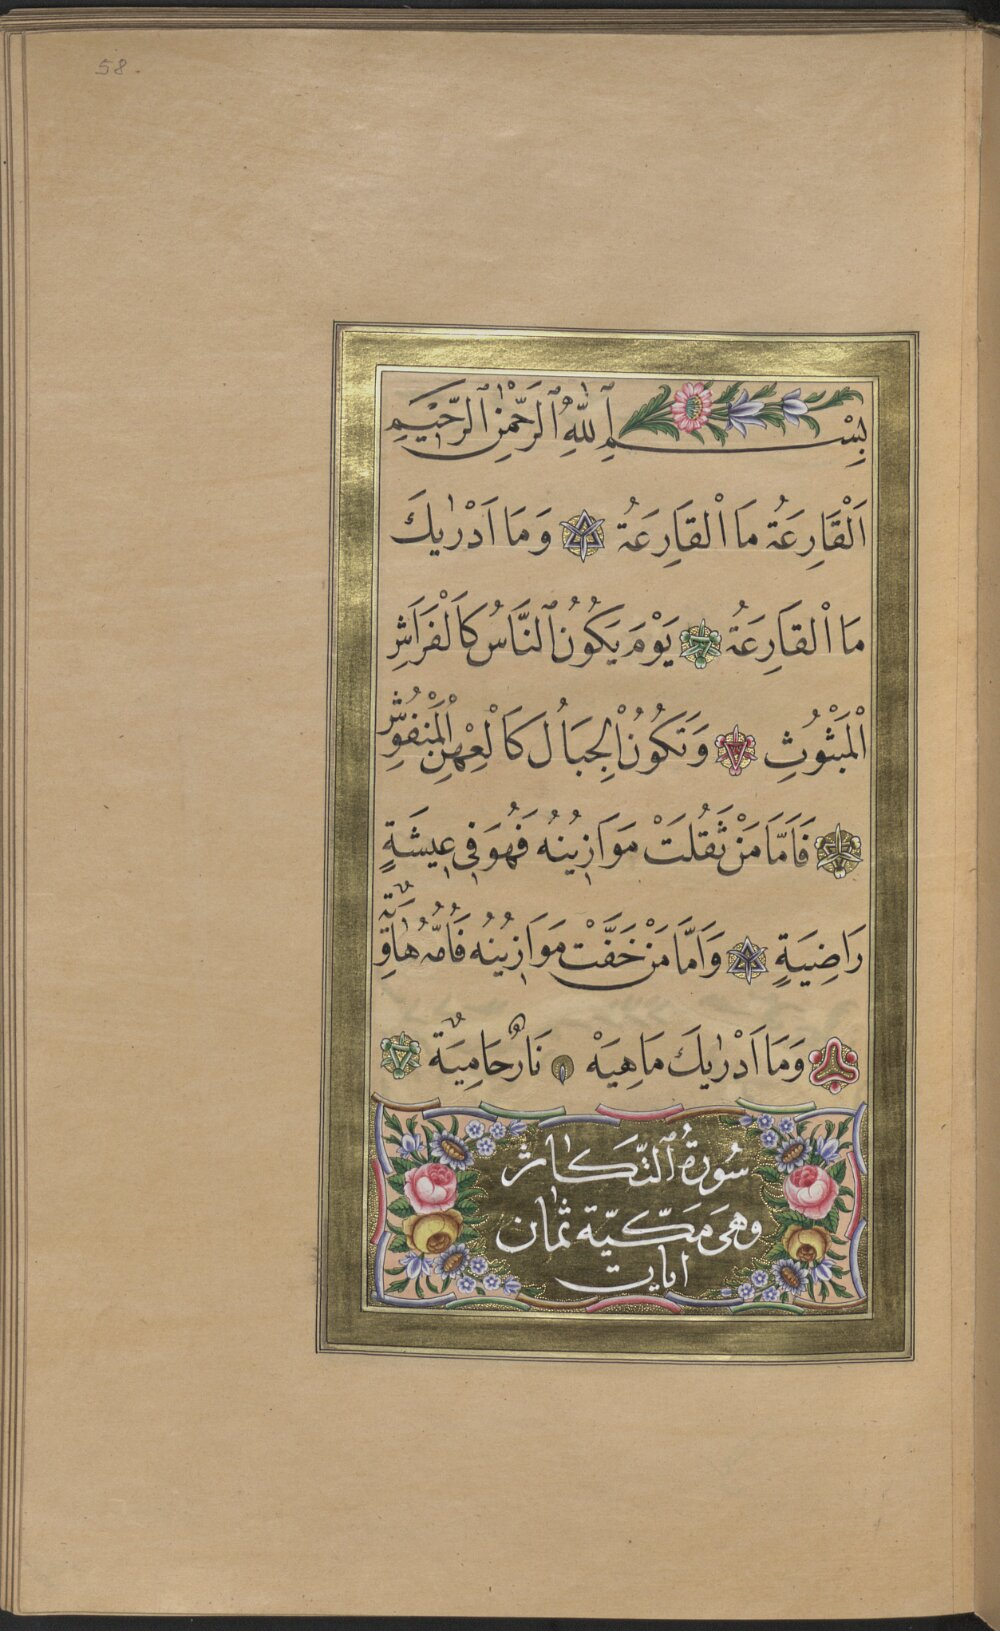 58.
بِسْمِ ٱللّٰهِ ٱلرَّحْمٰنِ ٱلرَّحيْمِ
اَلْقَارِعَةُ مَا اْلقَارِعَةُ وَمَا اَدْرٰيكَ
مَا اْلقَارِعَةُ يَوْمَ يَكُونُ ٱلنَّاسُ كَاَلْفَرَاشِ
اْلمَبْثُوْثِ وَتَكُونُ اْلجِبَالُ كَاَلْعِهْنِ اْلمَنْفُوْشِ
فَاَمَّا مَنْ ثَقُلَتْ مَوَازٖينُهُ فَهُوَ فٖى عٖيشَةٍ
رَاضِيَةٍ وَاَمَّا مَنْ خَفَّتْ مَوَازٖينُهُ فَاُمُّهُ هَاوِيَةٌ
وَمَا اَدْرٰيكَ مَاهِيَهْ نَارٌ حَامِيَةٌ
سُورَةُ ٱلتَّكَاثر
وهىَ مَكّيّة ثمَان
ايات